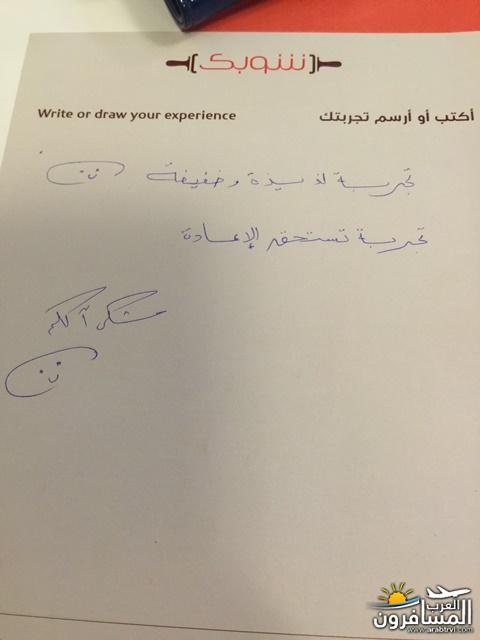 شوبك
Write or draw your experience
أكتب أو أرسم تجربتك
تجربة لذيذة وخفيفة
تجربة تستحق الإعادة
شكراً لكم
العرب
المسافرون
www.arabtrvl.com